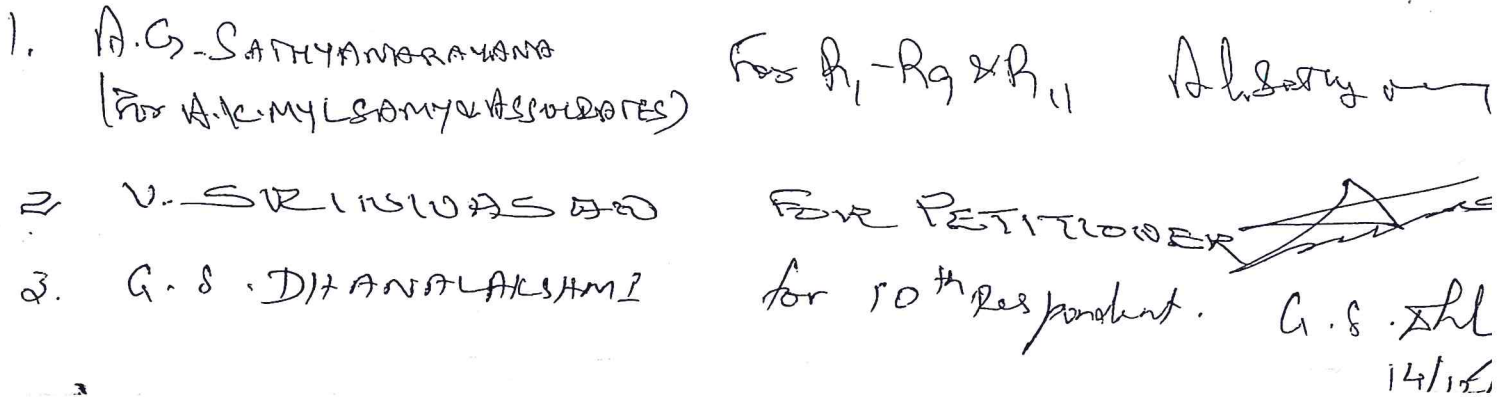 1. A.G. SATHYANARAYANA For R1-R9 & R11
(For A.K. MYLSAMY & ASSOCIATES)
2. V. SRINIVASAN FOR PETITIONER
3. G.S. DHANALAKSHMI for 10th Respondent. G.S.